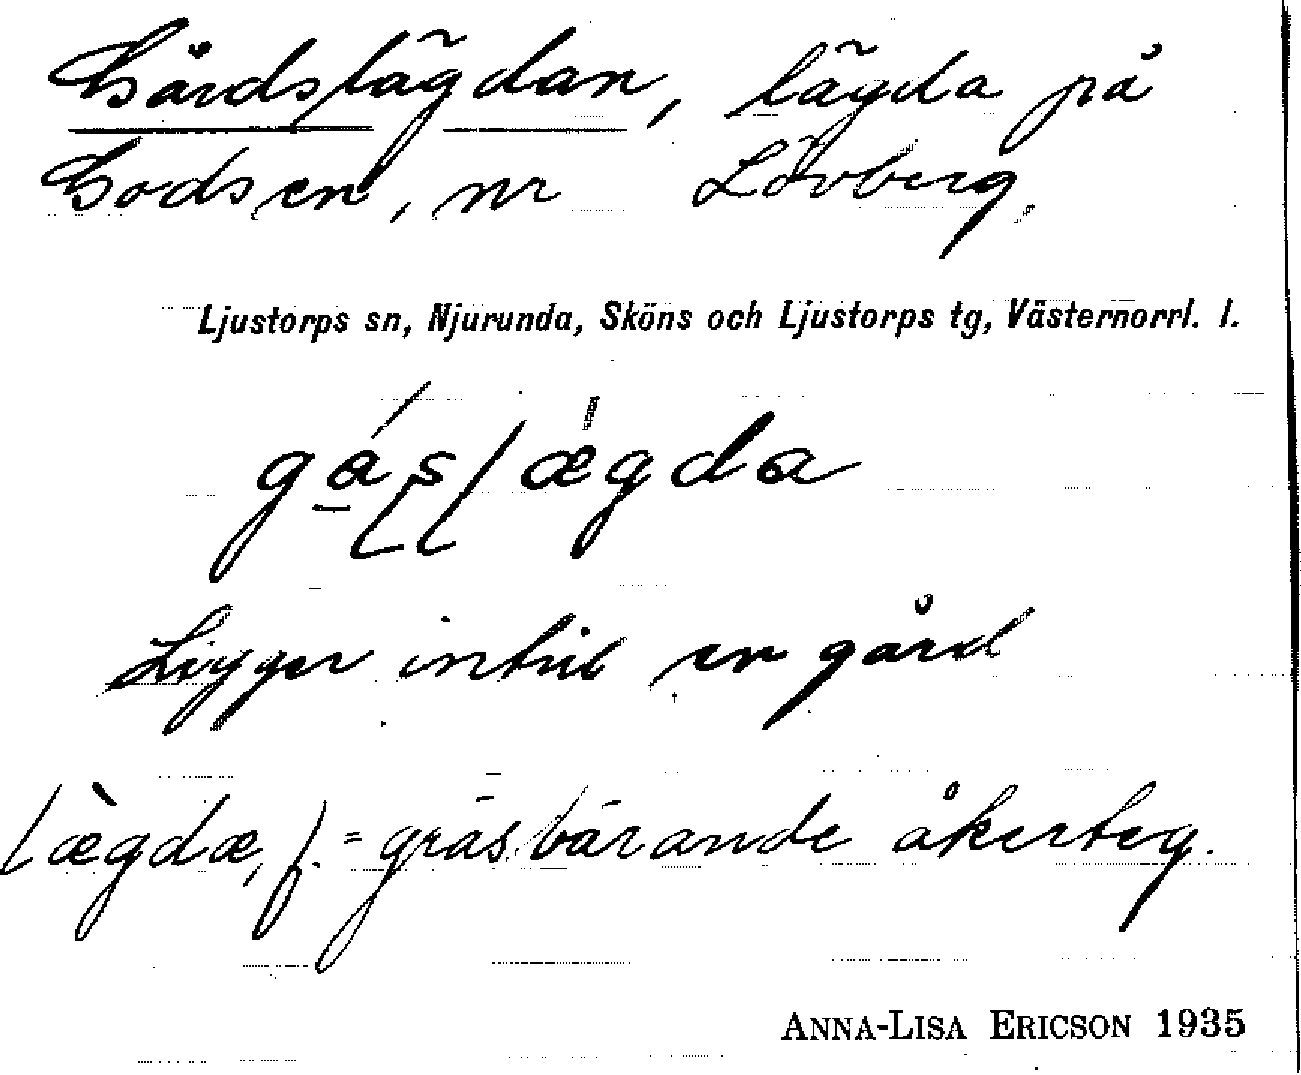 Gårdslägdan, lägda på
Godsen, nr Lövberg.
Ljustorps sn, Njurunda, Sköns och Ljustorps tg, Västernorrl. l.
Ligger intill en gård
lægdæ, f. = gräsbärande åkerteg.
ANNA-LISA ERICSON 1935